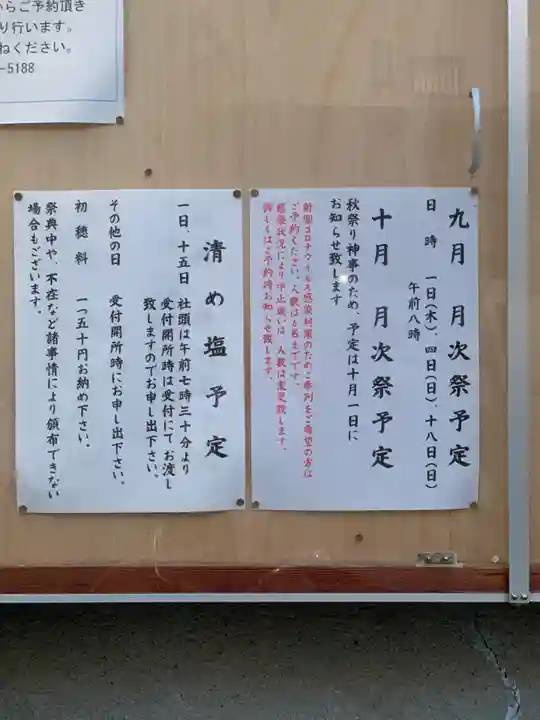 からご予約頂き
り行います。
ねください。
-5188
九月　月次祭予定
日　時　一日(木)、四日(日)、十八日(日)
午前八時
十月　月次祭予定
秋祭り神事のため、予定は十月一日に
お知らせ致します
新型コロナウイルス感染対策のためご参列をご希望の方は
ご予約ください。人数は6名までです。
感染状況により中止或いは、人数は変更致します。
詳しくはご予約時お知らせ致します。
清め塩予定
一日、十五日　社頭は午前七時三十分より
受付開所時は受付にてお渡し
致しますのでお申し出下さい。
その他の日　受付開所時にお申し出下さい。
初穂料　一つ五十円お納め下さい。
祭典中や、不在など諸事情により頒布できない
場合もございます。